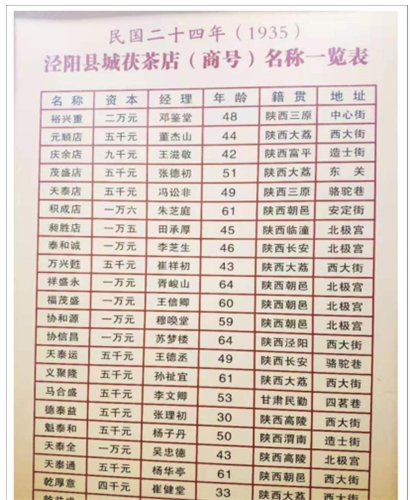 民国二十四年（1935）
泾阳县城茯茶店（商号）名称一览表
名称 资本 经理 年龄 籍贯 地址
裕兴重 二万元 邓鉴堂 48 陕西三原 中心街
元顺店 五千元 董杰山 44 陕西大荔 西大街
庆余店 九千元 王滋敬 42 陕西富平 造士街
茂盛店 五千元 张德初 51 陕西大荔 东关
天泰店 五千元 冯讼非 49 陕西三原 骆驼巷
积成店 一万六 朱芝庭 61 陕西朝邑 安定街
昶胜店 一万五 田承厚 45 陕西临潼 北极宫
泰和诚 一万元 李芝生 46 陕西长安 北极宫
万兴甡 五千元 崔祥初 43 陕西大荔 西大街
祥盛永 一万元 胥峻山 64 陕西朝邑 北极宫
福茂盛 一万元 王信卿 60 陕西朝邑 北极宫
协和源 一万元 穆唤堂 59 陕西朝邑 北极宫
协信昌 一万元 苏梦楼 64 陕西泾阳 西大街
天泰运 五千元 王德丞 49 陕西长安 骆驼巷
义聚隆 五千元 孙祉宜 61 陕西大荔 西大街
马合盛 五千元 李文卿 53 甘肃民勤 四茗巷
德泰益 五千元 张理初 30 陕西高陵 西大街
魁泰和 五千元 杨子丹 50 陕西渭南 造士街
天泰全 一万元 吴忠德 43 陕西高陵 北极宫
天泰通 五千元 杨华亭 61 陕西朝邑 西大街
乾厚意 四千元 崔健堂 33 陕西大荔 西大街